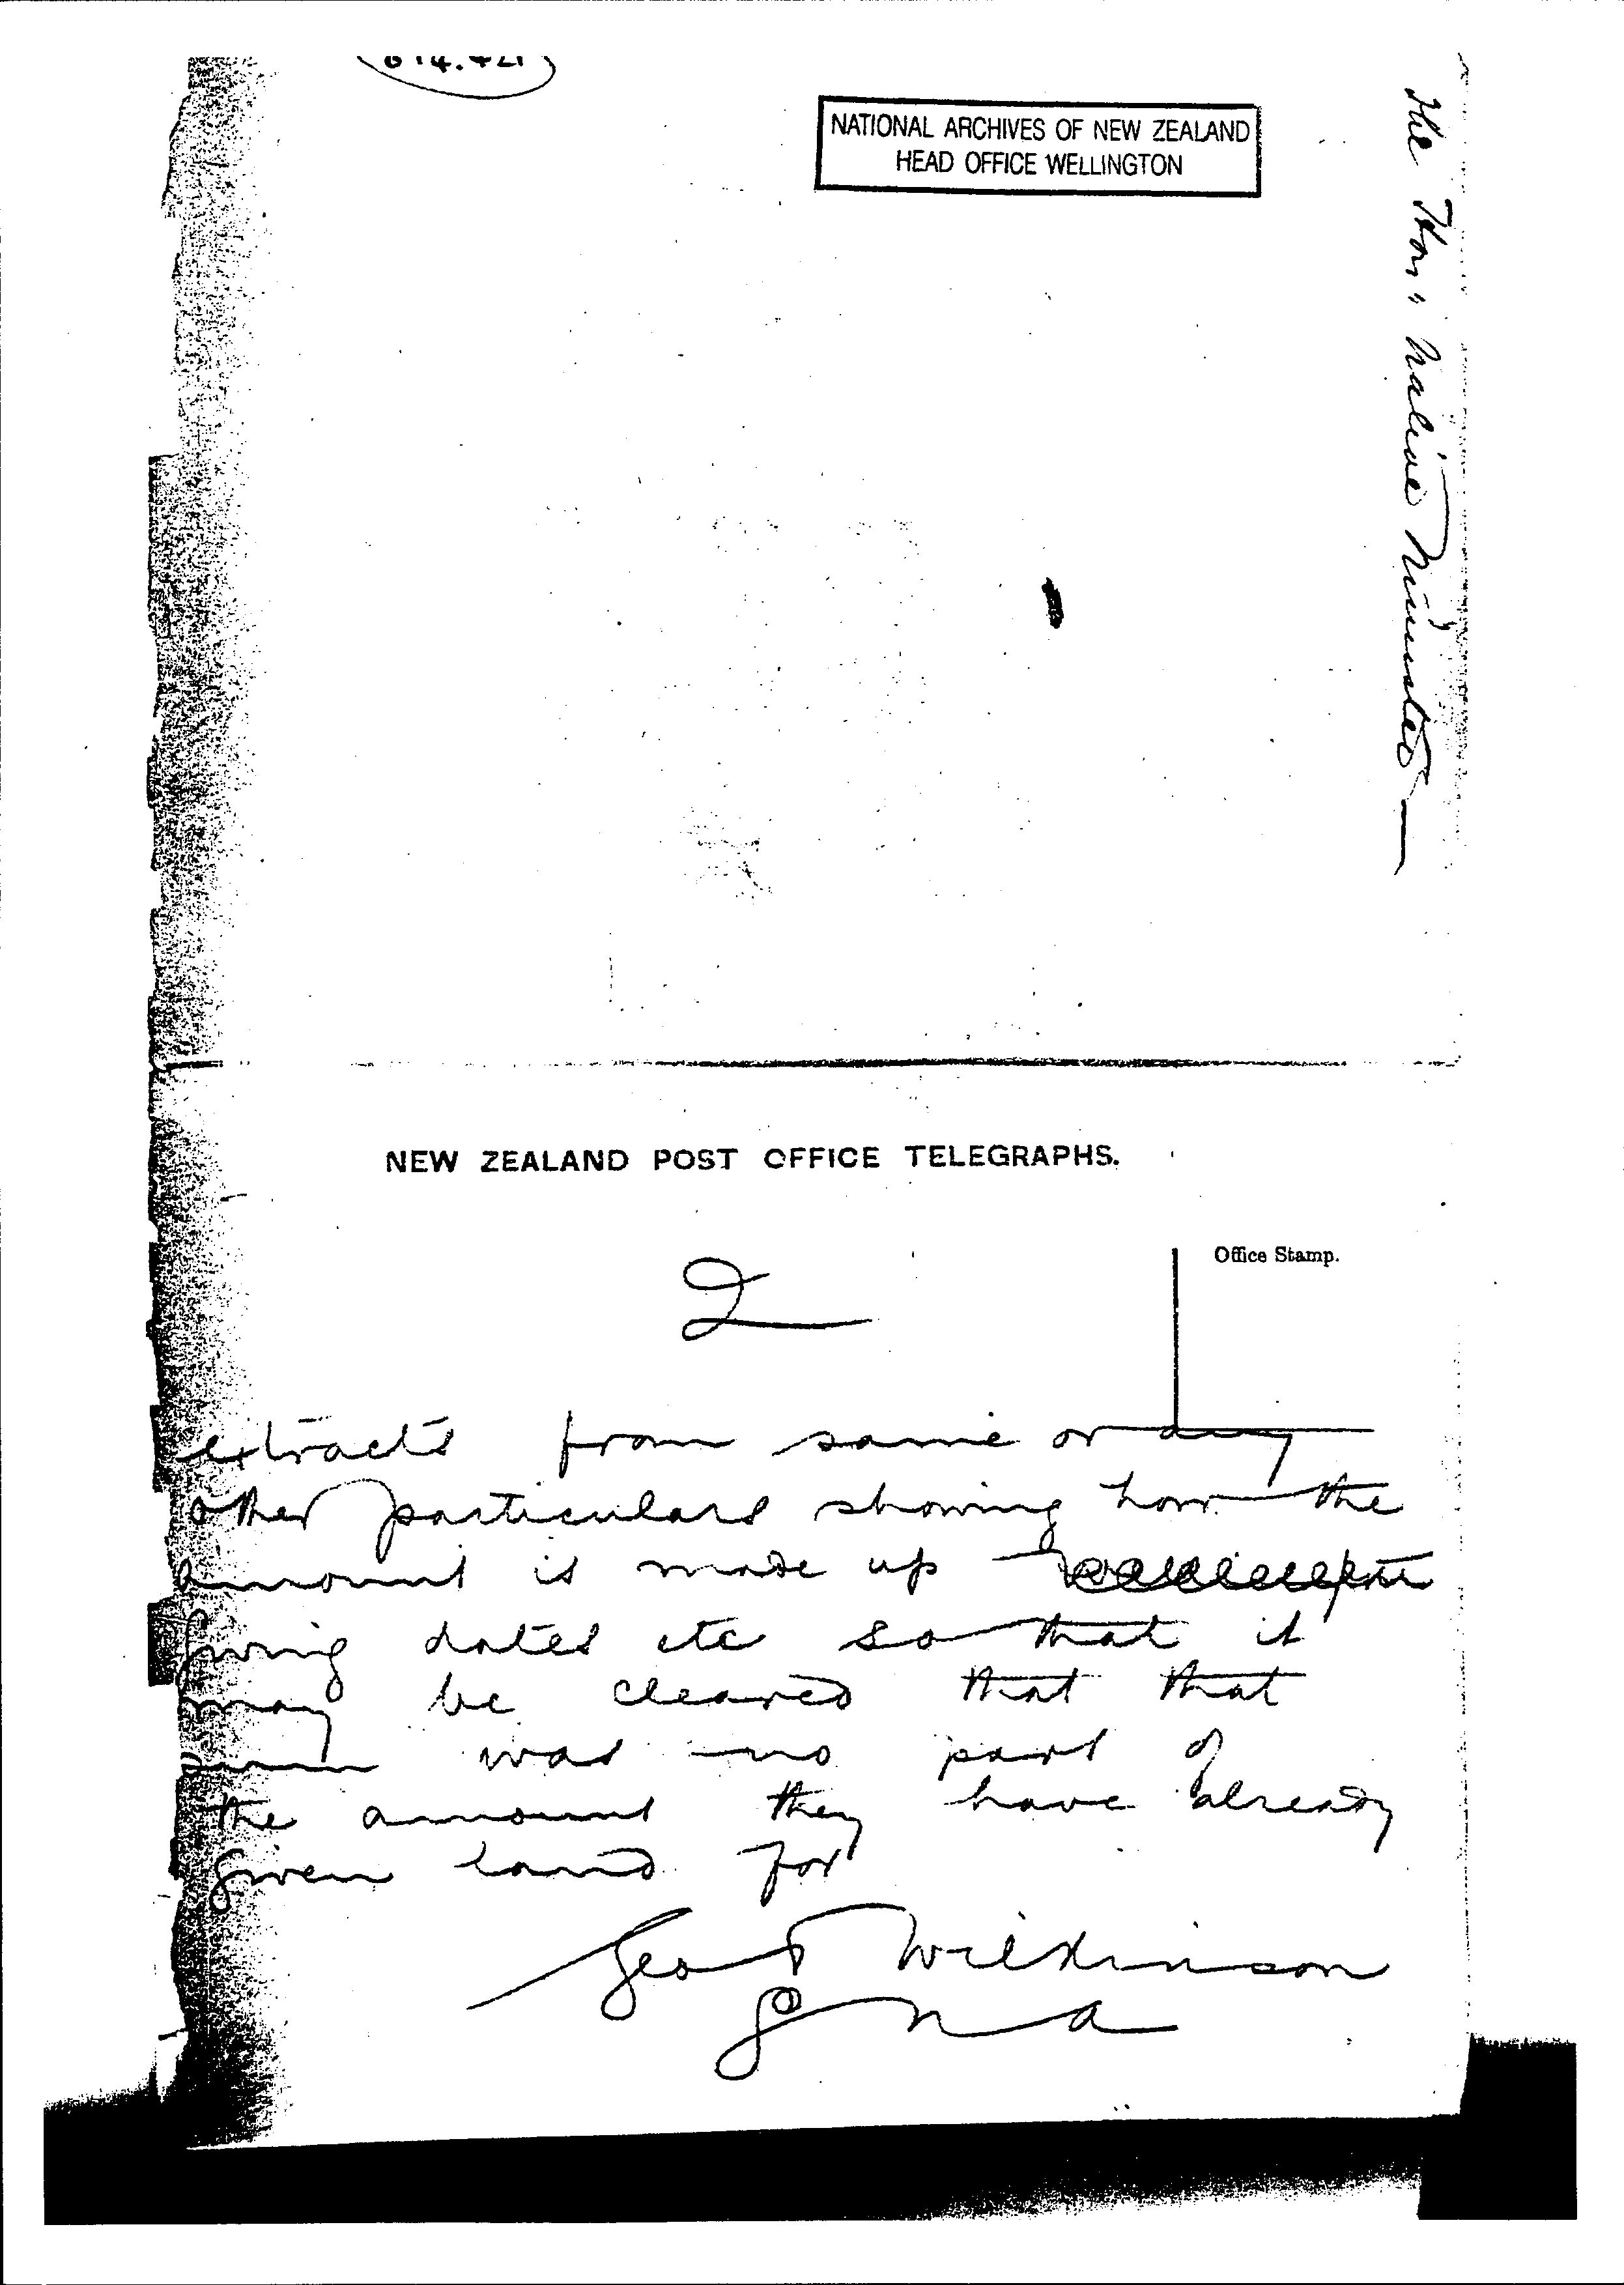 NATIONAL ARCHIVES OF NEW ZEALAND
HEAD OFFICE WELLINGTON
The Hon. Native Minister
NEW ZEALAND POST OFFICE TELEGRAPHS.
Office Stamp.
2
extracts from same or any
other particulars showing how the
amount is made up
giving dates etc so that it
may be cleared that that
sum was no part of
the amount they have already
given land for
Geo T Wilkinson
G n a